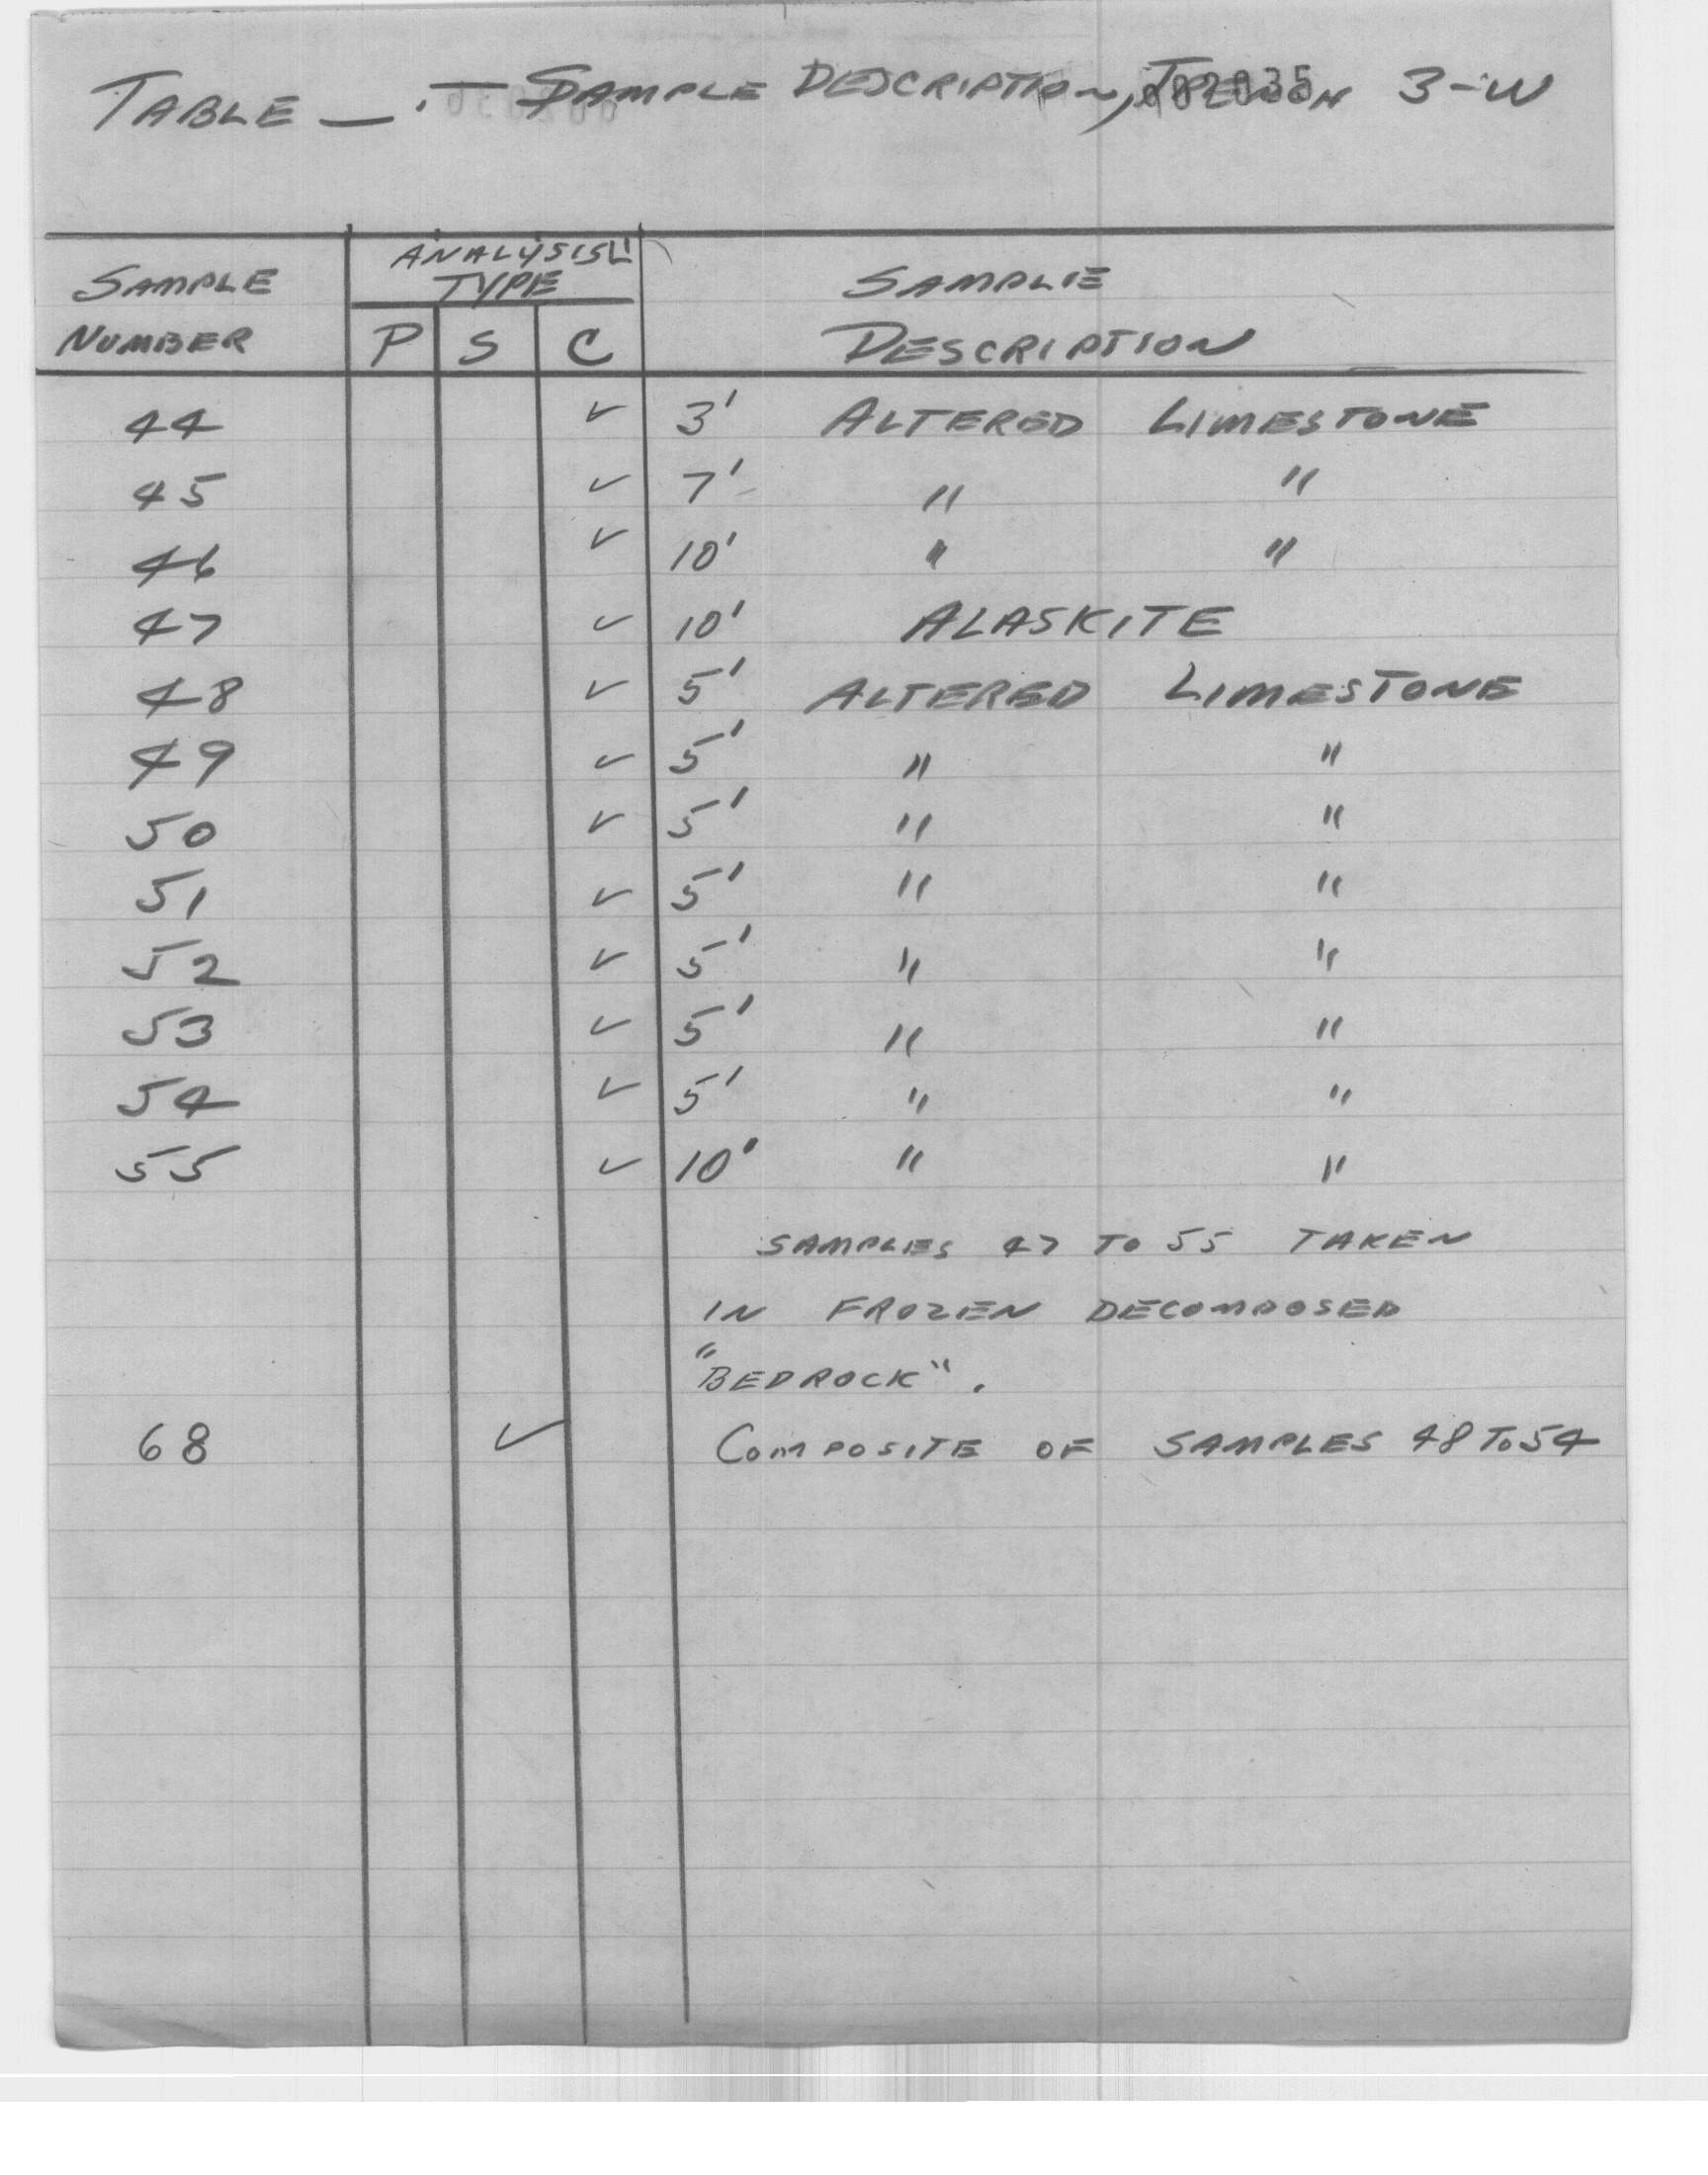 TABLE _ . — SAMPLE DESCRIPTION, TRENCH 3-W
002035
SAMPLE NUMBER ANALYSIS 1/ TYPE SAMPLE DESCRIPTION
P S C
44 ✓ 3' ALTERED LIMESTONE
45 ✓ 7' " "
46 ✓ 10' " "
47 ✓ 10' ALASKITE
48 ✓ 5' ALTERED LIMESTONE
49 ✓ 5' " "
50 ✓ 5' " "
51 ✓ 5' " "
52 ✓ 5' " "
53 ✓ 5' " "
54 ✓ 5' " "
55 ✓ 10' " "
SAMPLES 47 TO 55 TAKEN
IN FROZEN DECOMPOSED
"BEDROCK".
68 ✓ COMPOSITE OF SAMPLES 48 TO 54